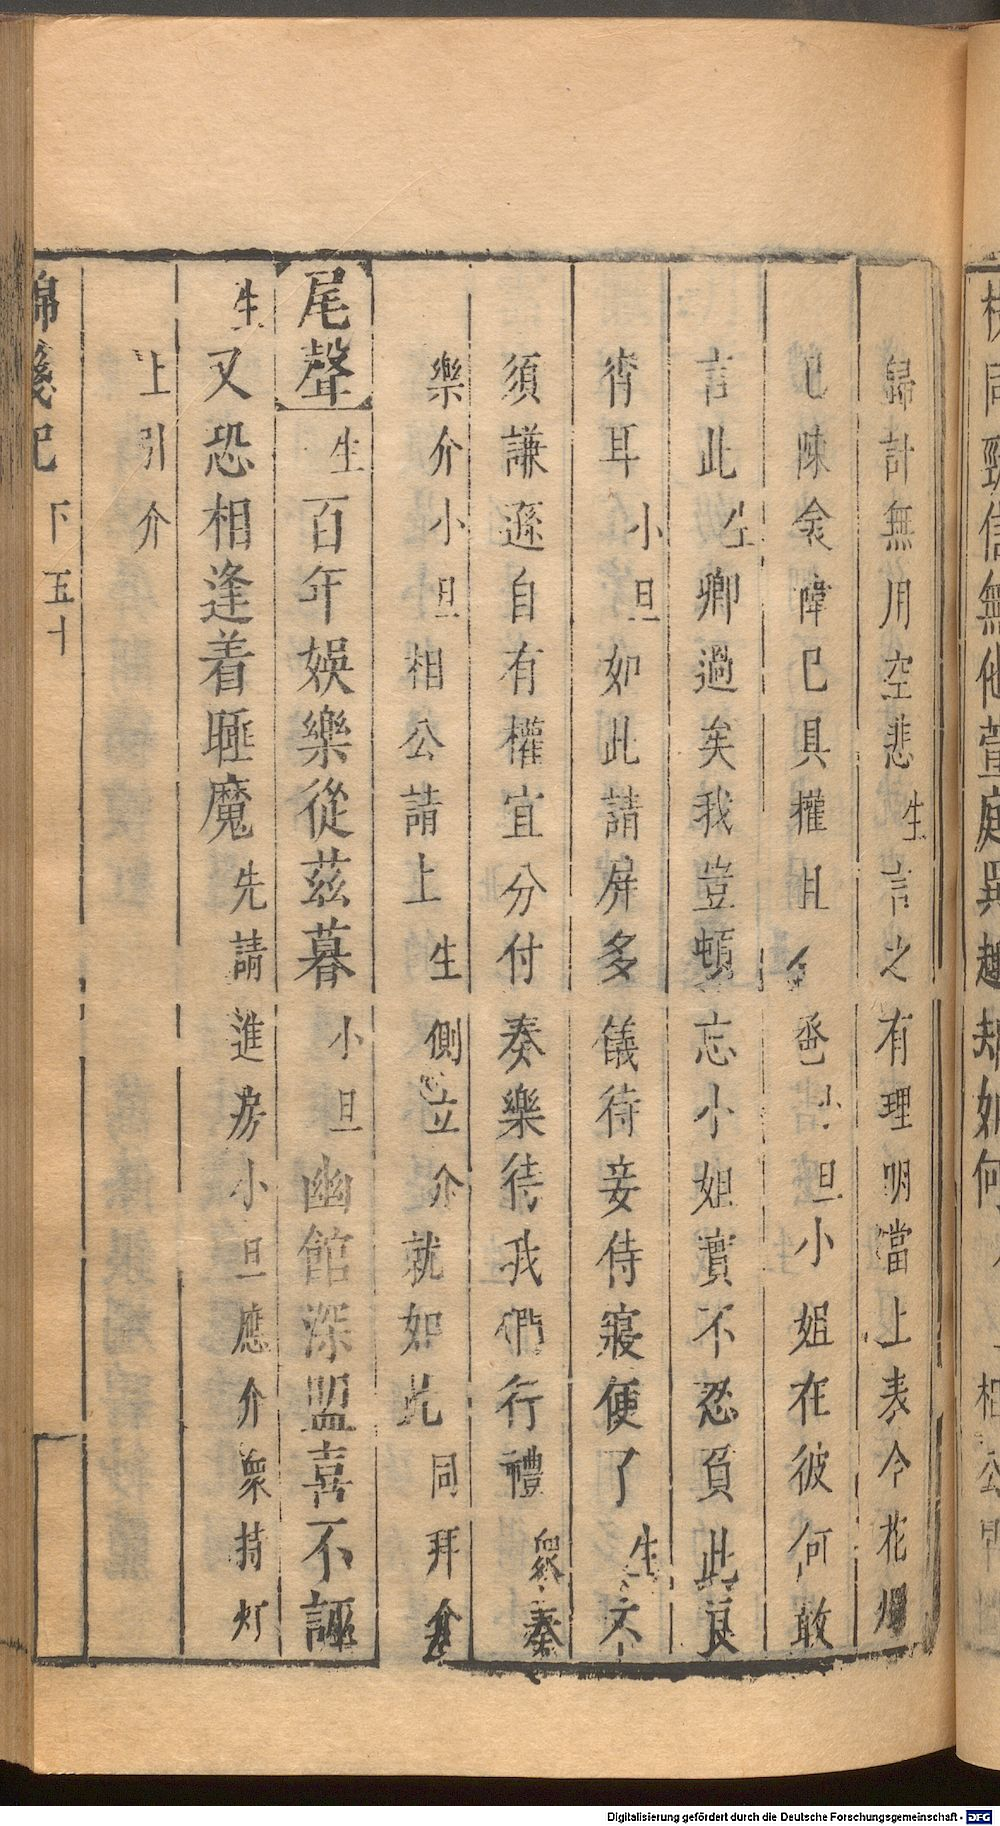 歸計無用空悲生言之有理明當上表今花燭
已陳衾幃已具權且合卺小旦小姐在彼何敢
言此生卿過矣我豈頓忘小姐實不忍負此良
宵耳小旦如此請屏多儀待妾侍寢便了生文
須謙遜自有權宜分付奏樂待我們行禮衆奏
樂介小旦相公請上生側立介就如此同拜介
尾聲生百年娛樂從茲暮小旦幽館深盟喜不誣
生又恐相逢着睡魔先請進房小旦應介衆持灯
上引介
錦箋記 下 五十
Digitalisierung gefördert durch die Deutsche Forschungsgemeinschaft - DFG